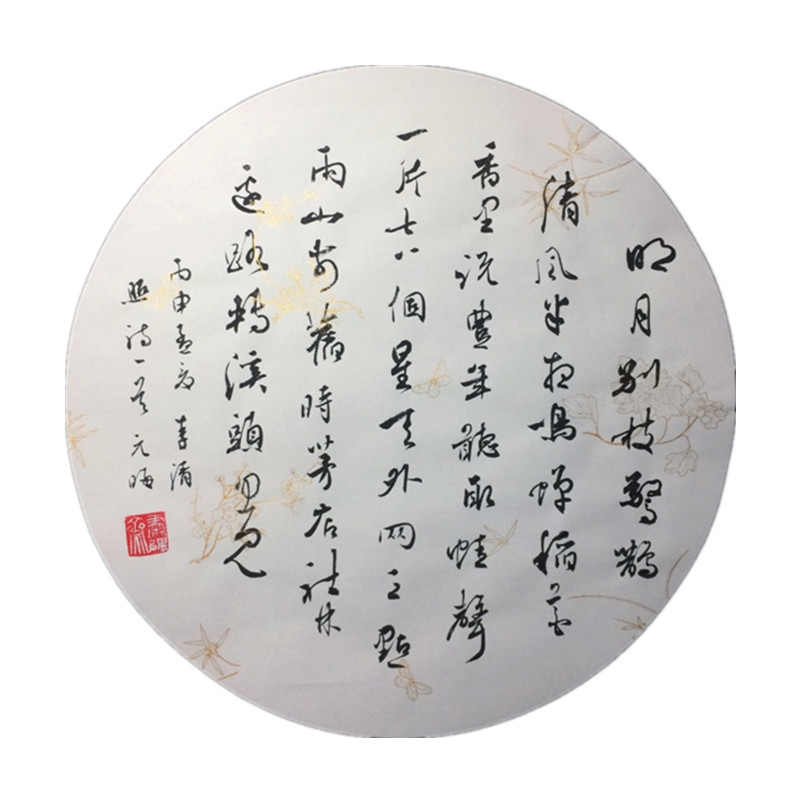 明月别枝驚鵲
清風半夜鳴蟬稻花
香里説豐年聽取蛙聲
一片七八個星天外兩三點
雨山前舊時茅店社林
邊路轉溪頭忽見
丙申孟夏 李清
照詩一首 元晦